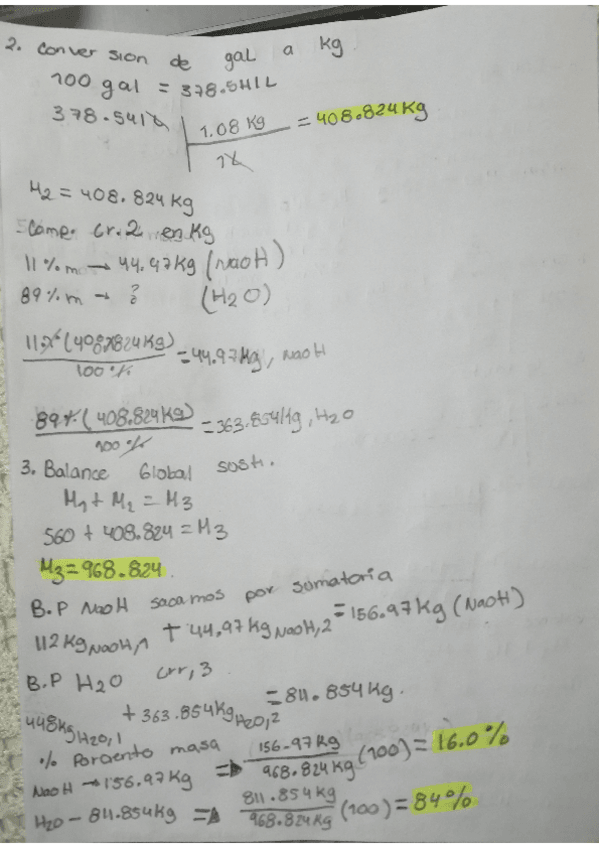 2. Conversion de gal a kg
100 gal = 378.541L
378.541L | 1.08 Kg = 408.824Kg
1L
M2 = 408.824 Kg
Comp. Cr. 2 en Kg
11 %m → 44.97Kg (NaOH)
89 %m → ? (H2O)
11% (408.824Kg) = 44.97Kg, NaOH
100 %
89% (408.824Kg) = 363.854Kg, H2O
100 %
3. Balance Global sust.
M1 + M2 = M3
560 + 408.824 = M3
M3 = 968.824
B.P NaOH sacamos por sumatoria
112 Kg NaOH,1 + 44,97 Kg NaOH,2 = 156.97 Kg (NaOH)
B.P H2O crr, 3
448Kg H2O,1 + 363.854Kg H2O,2 = 811.854 Kg.
% Porciento masa
NaOH → 156.97 Kg ⇒ 156.97 Kg / 968.824 Kg (100) = 16.0 %
H2O - 811.854Kg ⇒ 811.854 Kg / 968.824 Kg (100) = 84%